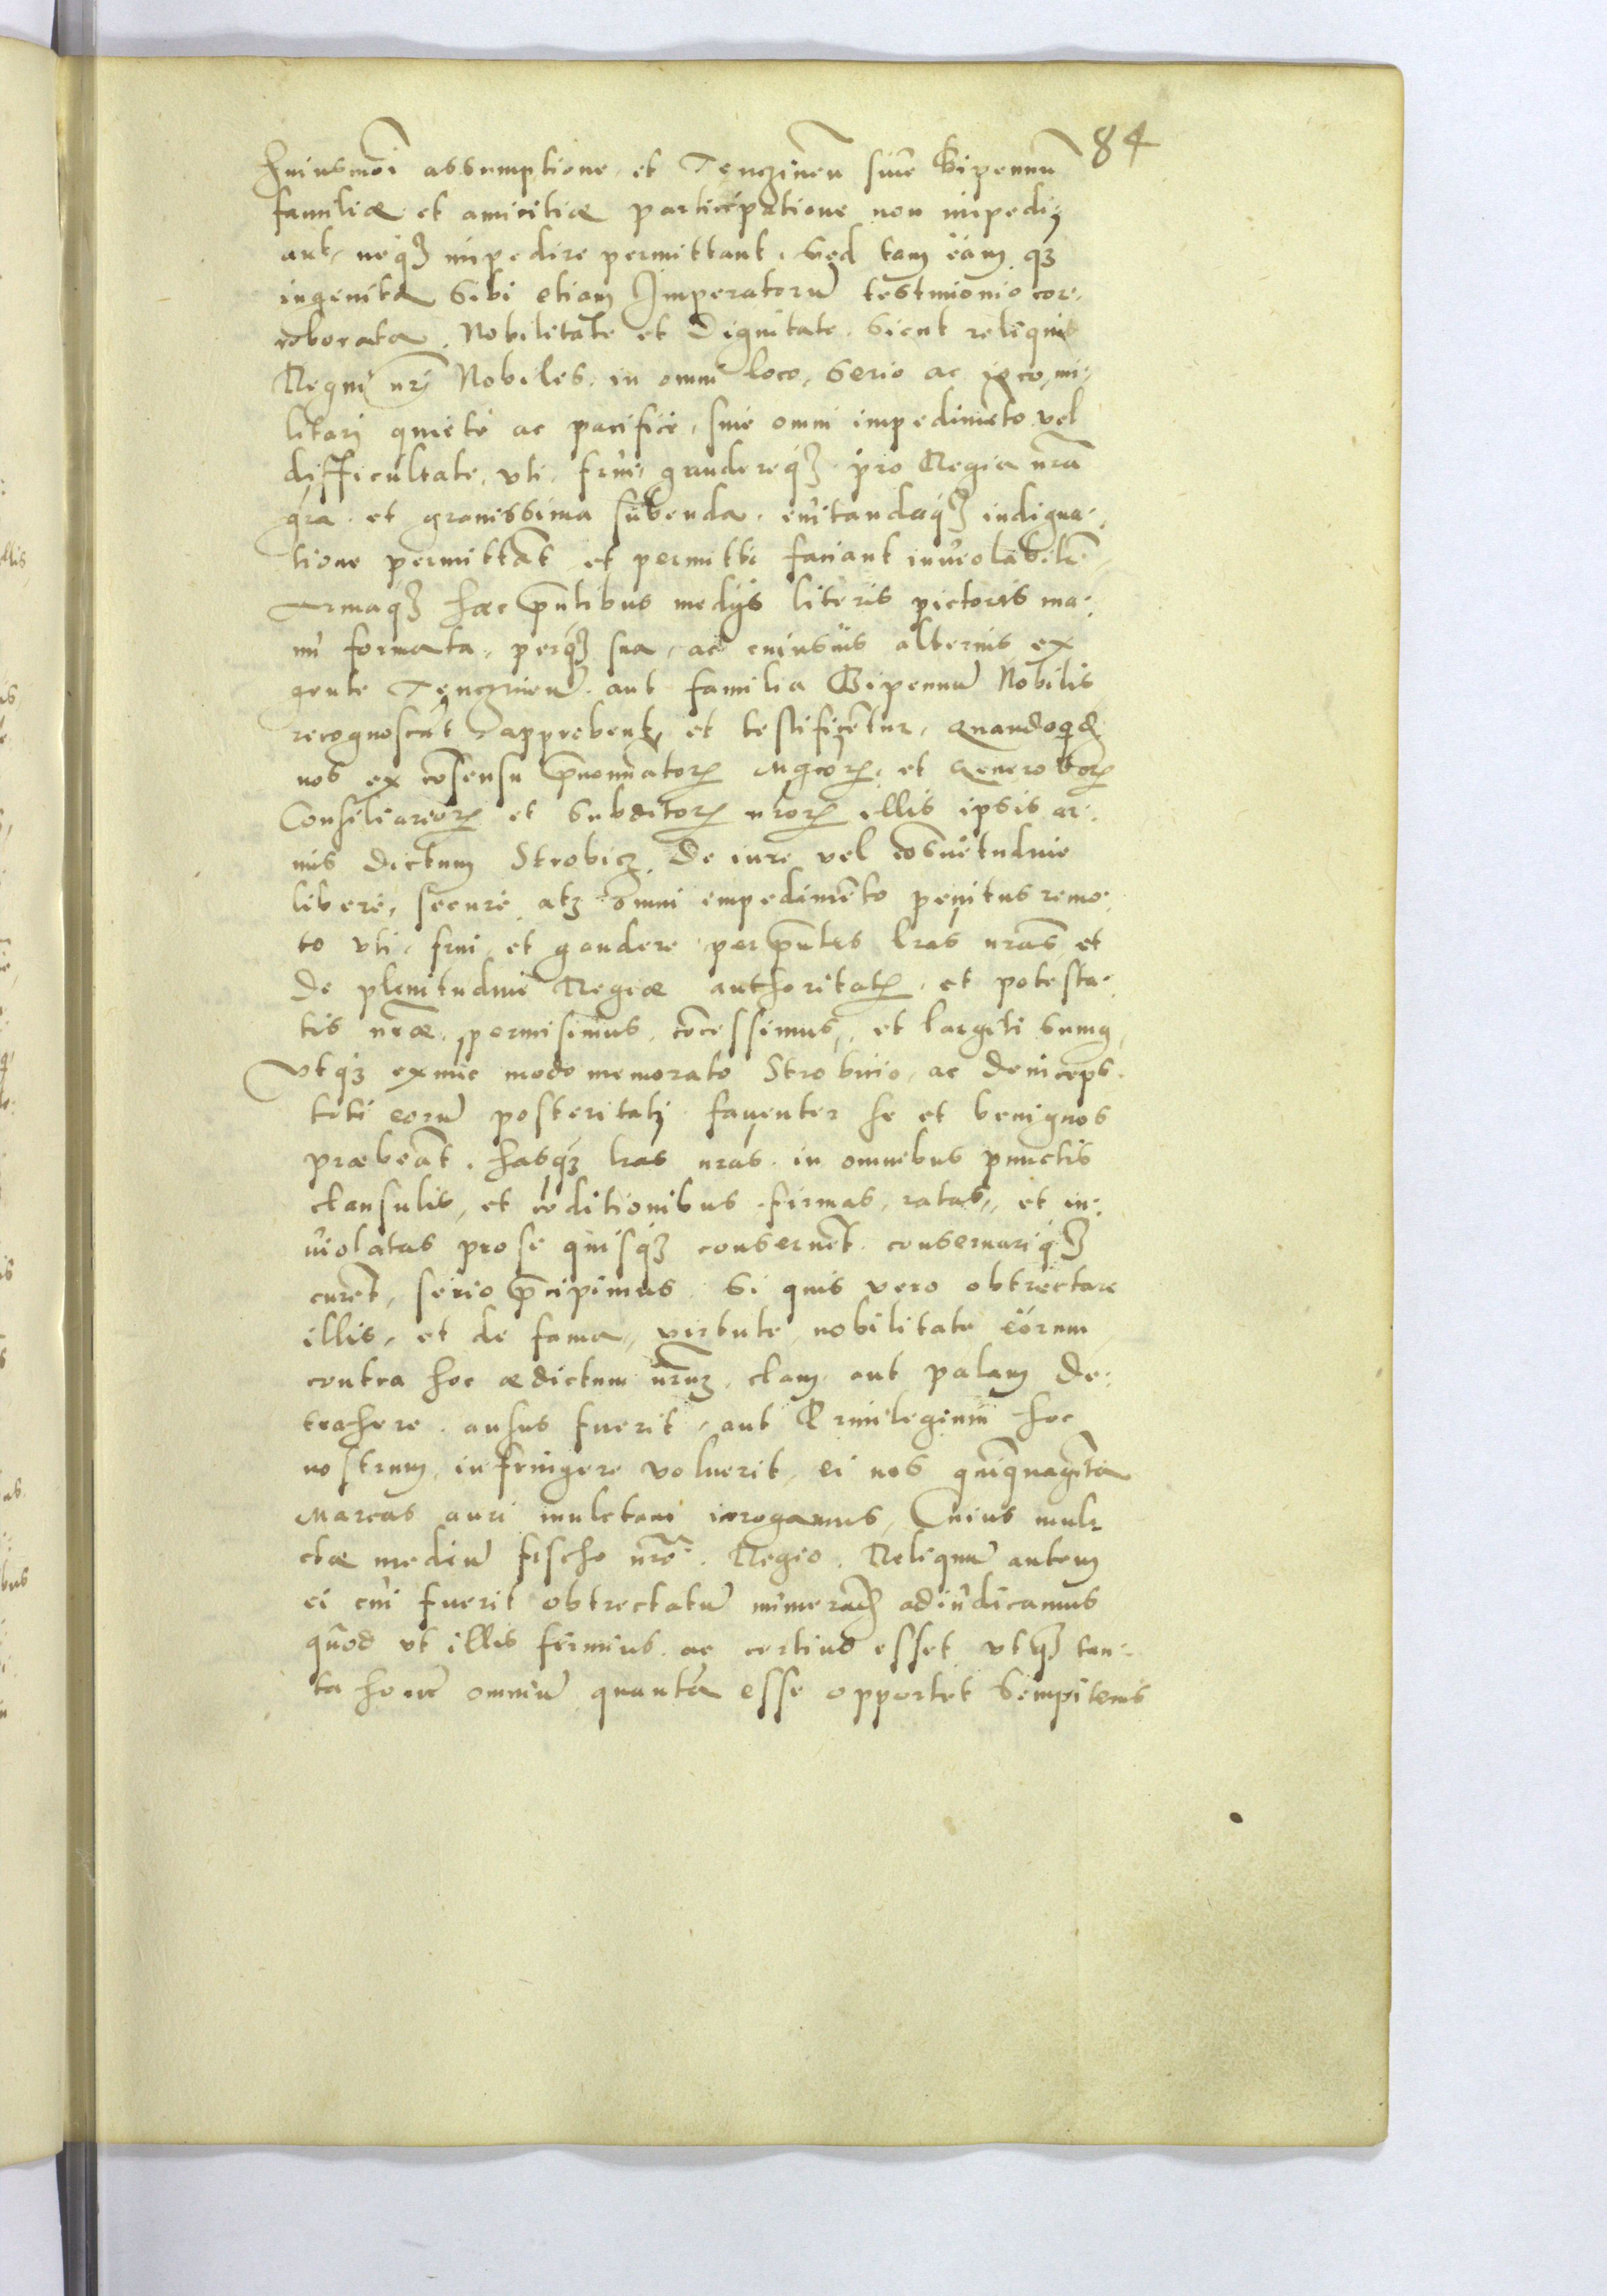 84
huiusmõi assumptione, et Tenczineñ siue Bipennũ
familiæ et amicitiæ participatione non impedi,
ant, neq; impedire permittant. Sed tam eam q;
ingenita Sibi etiam Imperatorũ testimonio cor,
roborata, Nobilitate et Dignitate. Sicut reliqui
Regni nrĩ Nobiles, in omni loco, Serio ac ioco, mi,
litari quiete ac pacifice, sine omni impedimẽto vel
difficultate, vti, frui, gaudereq; pro Regia nrã
grã. et grauissima subenda, euitandaq; indigna,
tione permittãt et permitti faciant inuiolabilr̃
Armaq; hæc pñtibus medijs literis pictoris ma:
nu formata, perq; sua, ac cuiusuis alterius ex
gente Tenczineñ. aut familia Bipennũ Nobilis
recognoscãt approbent, et testificẽtur, Quandoqd
nos ex cõsensu prænominatorũ Mgcorũ, et Generosorũ
Consiliariorũ et Subditorũ nrõrũ illis ipsis ar:
mis dictum Strobicz De iure vel cõsuetudine
libere, secure atq; omni impedimẽto penitus remo
to vti, frui, et gaudere per pñtes lras nrãs, et
De plenitudine Regiæ authoritatis, et potesta,
tis nrãe, permisimus, cõcessimus, et largiti sumus,
Vtq; exinde modo memorato Strobicio, ac deinceps
toti eorũ posteritati fauenter se et benignos
præbeãt, hasq; lras nrãs in omnibus punctis
clausulis, et cõditionibus firmas, ratas, et in:
uiolatas pro se quisq; conseruẽt conseruariq;
curẽt, serio præcipimus. Si quis vero obtrectare
illis, et de fama, virtute, nobilitate eorum
contra hoc ædictum nrũm, clam aut palam De:
trahere ausus fuerit, aut Priuilegium hoc
nostrum, infringere voluerit, ei nos quinquagĩta
Marcas auri mulctam irrogamus, Cuius mul,
ctæ mediũ fischo nrõ Regio. Reliquũ autem
ei cui fuerit obtrectatũ adiudicamus
quod vt illis firmius ac certius esset vtq; tan:
ta omniũ quanta esse opportet Sempiternis